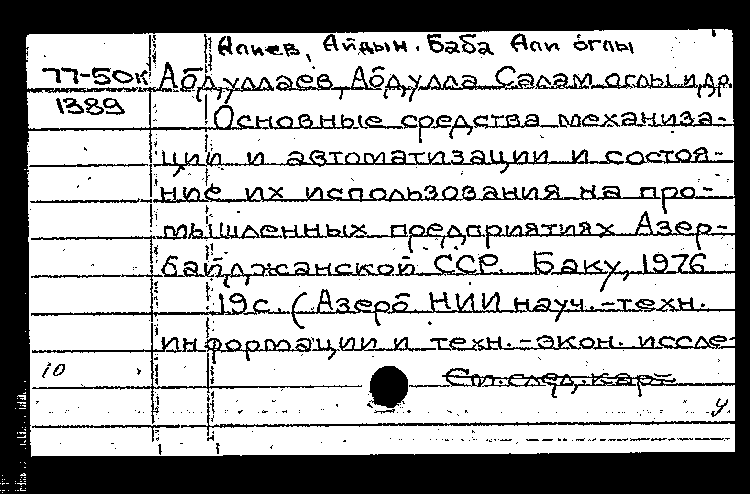 Алиев, Айдын. Баба Али оглы
77-50к Абдуллаев, Абдулла Салам оглы и др.
1389 Основные средства механиза-
ции и автоматизации и состоя-
ние их использования на про-
мышленных предприятиях Азер-
байджанской ССР. Баку, 1976
19с. (Азерб НИИ науч.-техн.
информации и техн.-экон. иссле-
10 См. след. кар-
у